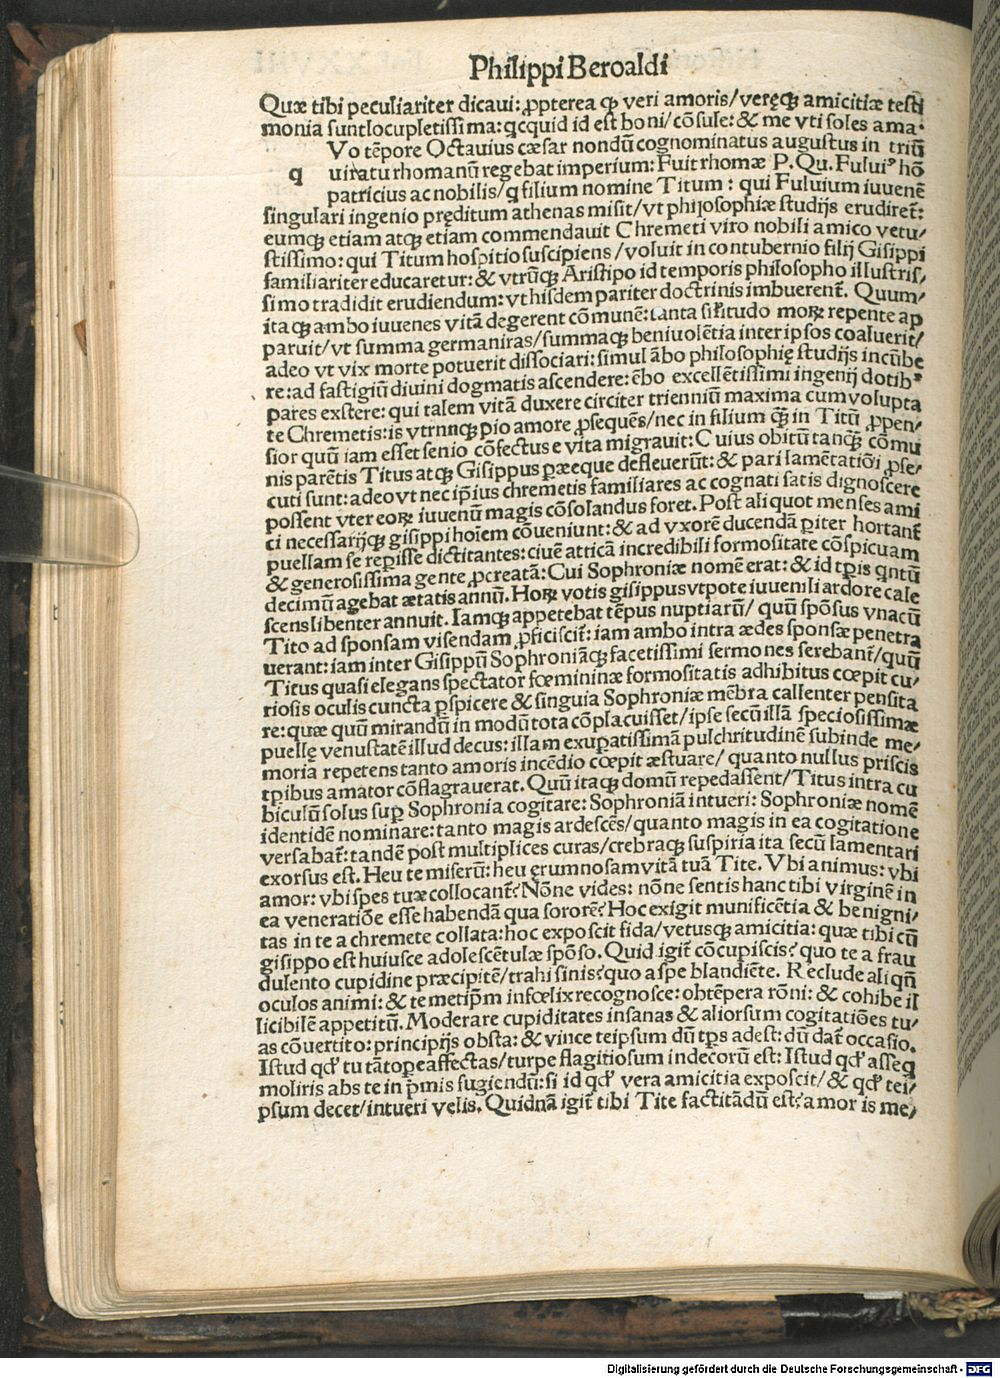 Philippi Beroaldi
Quæ tibi peculiariter dicaui: ꝓpterea ꝙ veri amoris/veręqꝫ amicitiæ testi
monia suntlocupletissima: qcquid id est boni/cōsule: & me vti soles ama.
Vo tēpore Octauius cæsar nondū cognominatus augustus in triū
q uiratu rhomanū regebat imperium: Fuit rhomæ P. Qu. Fuluiꝰ hō
patricius ac nobilis/q filium nomine Titum: qui Fuluium iuuenē
singulari ingenio pręditum athenas misit/vt philosophiæ studijs erudiret̄:
eumqꝫ etiam atqꝫ etiam commendauit Chremeti viro nobili amico vetu/
stissimo: qui Titum hospitio suscipiens/voluit in contubernio filij Gisippi
familiariter educaretur: & vtrūqꝫ Aristipo id temporis philosopho illustris/
simo tradidit erudiendum: vt hisdem pariter doctrinis imbuerent̄. Quum/
itaqꝫ ambo iuuenes vitā degerent cōmunē: tanta sil'itudo moꝝ repente ap
paruit/vt summa germanitas/summaqꝫ beniuolētia inter ipsos coaluerit/
adeo vt vix morte potuerit dissociari: simul ābo philosophię studijs incūbe
re: ad fastigiū diuini dogmatis ascendere: ēbo excellētissimi ingenij dotibꝰ
pares exstere: qui talem vitā duxere circiter trienniū maxima cum volupta
te Chremetis: is vtrnnqꝫ pio amore ꝓsequēs/nec in filium qꝫ̄ in Titū ꝓpen/
sior quū iam esset senio cōfectus e vita migrauit: Cuius obitū tanqꝫ̄ cōmu
nis parētis Titus atqꝫ Gisippus ꝑæeque defleuerūt: & pari lamētatiōi ꝓse/
cuti sunt: adeo vt nec ip̄ius chremetis familiares ac cognati satis dignoscere
possent vter eoꝝ iuuenū magis cōsolandus foret. Post aliquot menses ami
ci necessarijqꝫ gisippi hoīem cōueniunt: & ad vxorē ducendā ꝑiter hortant̄
puellam se reꝑisse dictitantes: ciuē atticā incredibili formositate cōspicuam
& generosissima gente ꝓcreatā: Cui Sophroniæ nomē erat: & id tꝑis qntū
decimū agebat ætatis annū. Hoꝝ votis gisippus vtpote iuuenili ardore cale
scens libenter annuit. Iamqꝫ appetebat tēpus nuptiarū/ quū spōsus vnacū
Tito ad sponsam visendam ꝓficiscit̄: iam ambo intra ædes sponsæ penetra
uerant: iam inter Gisippū Sophroniāqꝫ facetissimi sermones serebant̄/quū
Titus quasi elegans spectator fœmininæ formositatis adhibitus cœpit cu/
riosis oculis cuncta ꝑspicere & singula Sophroniæ mēbra callenter pensita
re: quæ quū mirandū in modū tota cōplacuisset/ipse secū illā speciosissimæ
puellę venustatē illud decus: illam exuꝑatissimā pulchritudinē subinde me/
moria repetens tanto amoris incēdio cœpit æstuare/ quanto nullus priscis
tꝑibus amator cōflagrauerat. Quū itaqꝫ domū repedassent/Titus intra cu
biculū solus suꝑ Sophronia cogitare: Sophroniā intueri: Sophroniæ nomē
identidē nominare: tanto magis ardescēs/quanto magis in ea cogitatione
versabat̄: tandē post multiplices curas/crebraqꝫ suspiria ita secū lamentari
exorsus est. Heu te miserū: heu ęrumnosam vitā tuā Tite. Vbi animus: vbi
amor: vbi spes tuæ collocant̄? Nōne vides: nōne sentis hanc tibi virginē in
ea veneratiōe esse habendā qua sororē? Hoc exigit munificētia & benigni/
tas in te a chremete collata: hoc exposcit fida/vetusqꝫ amicitia: quæ tibi cū
gisippo est huiusce adolescētulæ spōso. Quid igit̄ cōcupiscis? quo te a frau
dulento cupidine præcipitē/trahi sinis? quo a spe blandiēte. Reclude aliqn̄
oculos animi: & temetip̄m infœlix recognosce: obtēpera rōni: & cohibe il
licibilē appetitū. Moderare cupiditates insanas & aliorsum cogitatiōes tu/
as cōuertito: principijs obsta: & vince teipsum dū tꝑs adest: dū dat̄ occasio.
Istud qd' tu tātoꝑe affectas/turpe flagitiosum indecorū est: Istud qd' asseq
moliris abs te in p̄mis fugiendū: si id qd' vera amicitia exposcit/ & qd' tei/
psum decet/intueri velis. Quidnā igit̄ tibi Tite factitādū est? amor is me/
Digitalisierung gefördert durch die Deutsche Forschungsgemeinschaft - DFG